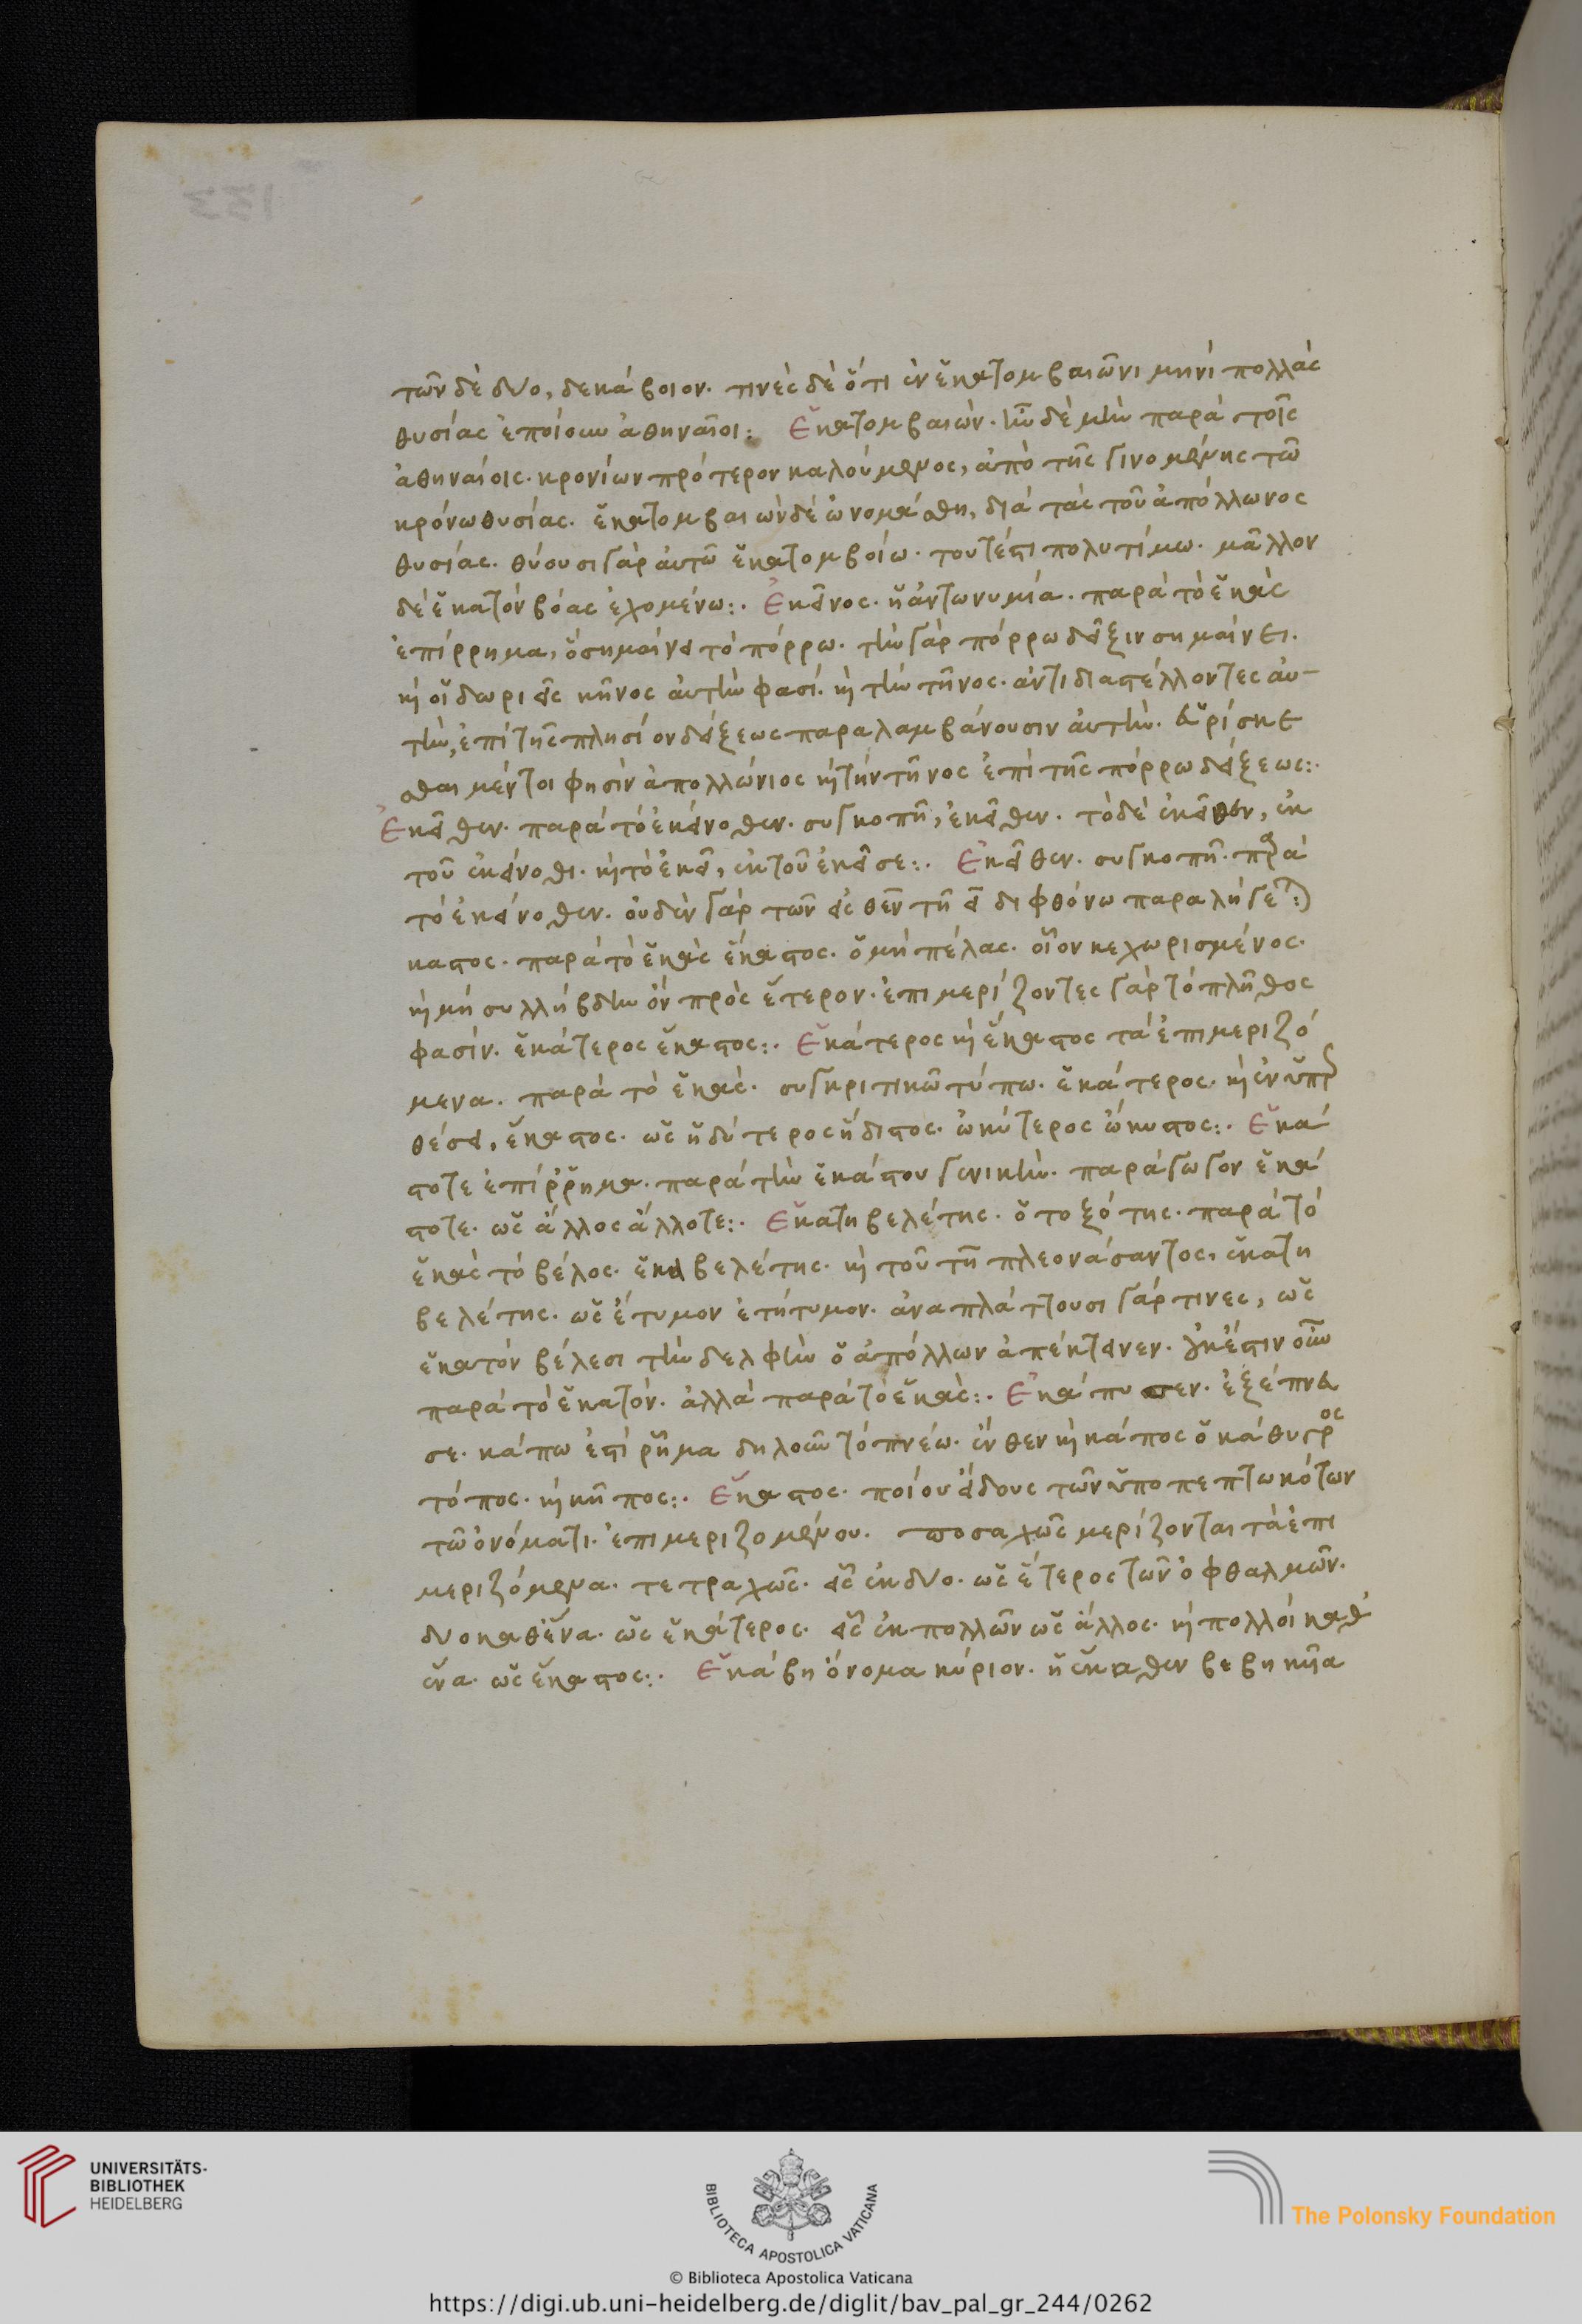 τῶν δὲ δύο, δεκάβοιον. τινὲς δὲ ὅτι ἐν ἑκατομβαιῶνι μηνὶ πολλὰς
θυσίας ἐποίουν ἀθηναῖοι: Ἑκατομβαιών. ἦν δὲ μὴν παρὰ τοῖς
ἀθηναίοις. κρονίων πρότερον καλούμενος, ἀπὸ τῆς γινομένης τῶ
κρόνω θυσίας. ἑκατομβαιὼν δὲ ὠνομάσθη, διὰ τὰς τοῦ ἀπόλλωνος
θυσίας. θύουσι γὰρ αὐτῶ ἑκατομβοίω. τουτέστι πολυτίμω. μᾶλλον
δὲ ἑκατὸν βόας ἐχομένω:. Ἐκεῖνος. ἡ ἀντωνυμία. παρὰ τὸ ἑκὰς
ἐπίρρημα, ὃ σημαίνει τὸ πόρρω. τὴν γὰρ πόρρω δεῖξιν σημαίνει.
καὶ οἱ δωριεῖς κῆνος αὐτὴν φασί. καὶ τὴν τῆνος. ἀντιδιαστέλλοντες αὐ-
τὴν, ἐπὶ τῆς πλησίον δείξεως παραλαμβάνουσιν αὐτὴν. εὑρίσκε
σθαι μέντοι φησὶν ἀπολλώνιος καὶ τὴν τῆνος ἐπὶ τῆς πόρρω δείξεως:.
Ἐκεῖθεν. παρὰ τὸ ἐκείνοθεν. συγκοπῆ, ἐκεῖθεν. τὸ δὲ ἐκεῖθεν, ἐκ
τοῦ ἐκείνοθι. καὶ τὸ ἐκεῖ, ἐκ τοῦ ἐκεῖσε:. Ἐκεῖθεν. συγκοπῆ. παρὰ
τὸ ἐκείνοθεν. οὐδὲν γὰρ τῶν εἰς θεν τῆ ει διφθόγγω παραλήγε:)
καστος. παρὰ τὸ ἑκὰς ἕκαστος. ὁ μὴ πέλας. οἷον κεχωρισμένος.
καὶ μὴ συλλήβδην ὂν πρὸς ἕτερον. ἐπιμερίζοντες γὰρ τὸ πλῆθος
φασίν. ἑκάτερος ἕκαστος:. Ἑκάτερος καὶ ἕκαστος τὰ ἐπιμεριζό
μενα. παρὰ τὸ ἑκὰς. συγκριτικῶ τύπω. ἑκάτερος. καὶ ἐν ὑπερ
θέσει, ἕκαστος. ὡς ἡδύτερος ἥδιστος. ὠκύτερος ὤκυστος:. Ἑκά
στοτε ἐπίρρημα. παρὰ τὴν ἑκάστου γενικὴν. παράγωγον ἑκά
στοτε. ὡς ἄλλος ἄλλοτε:. Ἑκατηβελέτης. ὁ τοξότης. παρὰ τὸ
ἑκὰς τὸ βέλος. ἑκαβελέτης. καὶ τοῦ τη πλεονάσαντος, ἑκατη
βελέτης. ὡς ἔτυμον ἐτήτυμον. ἀναπλάττουσι γάρ τινες, ὡς
ἑκατὸν βέλεσι τὴν δελφὴν ὁ ἀπόλλων ἀπέκτεινεν. οὐκ ἔστιν οὖν
παρὰ τὸ ἑκατόν. ἀλλὰ παρὰ τὸ ἑκὰς:. Ἐκάπυσεν. ἐξέπνευ
σε. κάπω ἐστὶ ῥῆμα δηλοῦν τὸ πνέω. ἔνθεν καὶ κάπος ὁ κάθυγρος
τόπος. καὶ κῆπος:. Ἕκαστος. ποίου εἴδους τῶν ὑποπεπτωκότων
τῶ ὀνόματι. ἐπιμεριζομένου. ποσαχῶς μερίζονται τὰ ἐπι
μεριζόμενα. τετραχῶς. εἷς ἐκ δύο. ὡς ἕτερος τῶν ὀφθαλμῶν.
δύο καθένα. ὡς ἑκάτερος. εἷς ἐκ πολλῶν ὡς ἄλλος. καὶ πολλοὶ καθ'
ἕνα. ὡς ἕκαστος:. Ἑκάβη ὄνομα κύριον. ἡ ἕκαθεν βεβηκυῖα
UNIVERSITÄTS-
BIBLIOTHEK
HEIDELBERG
BIBLIOTECA APOSTOLICA VATICANA
The Polonsky Foundation
© Biblioteca Apostolica Vaticana
https://digi.ub.uni-heidelberg.de/diglit/bav_pal_gr_244/0262